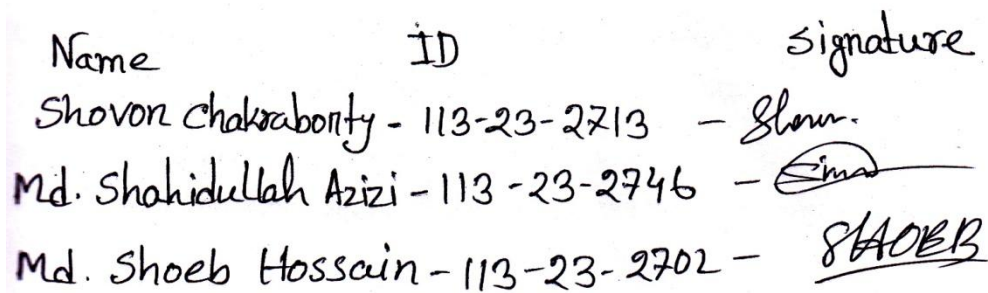 Name ID Signature
Shovon Chakraborty - 113-23-2713 - Shovon.
Md. Shahidullah Azizi - 113-23-2746 -
Md. Shoeb Hossain - 113-23-2702 - SHOEB